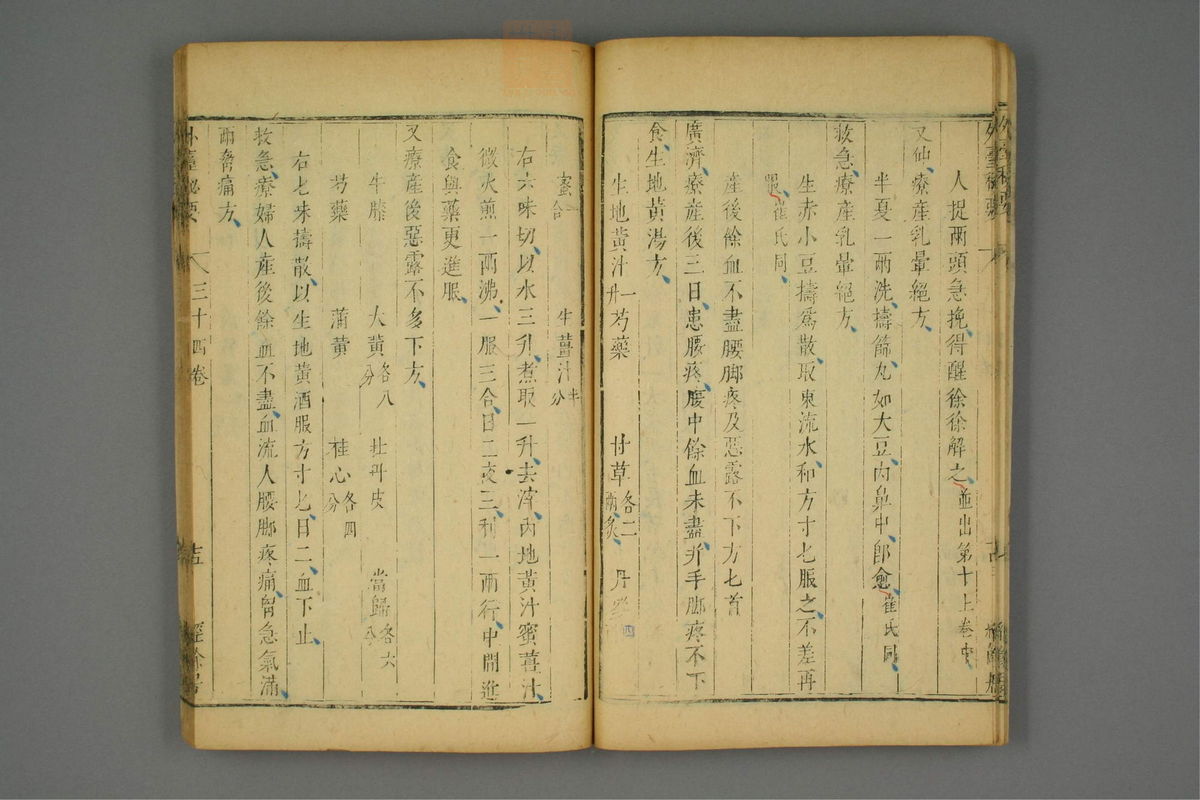 人捉兩頭急挽得醒徐徐解之並出第十上卷中
又仙療産乳暈絕方
半夏一兩洗擣篩丸如大豆內鼻中即愈崔氏同
救急療産乳暈絕方
生赤小豆擣爲散取東流水和方寸匕服之不差再
服崔氏同
産後餘血不盡腰脚疼及惡露不下方七首
廣濟療産後三日患腰疼腹中餘血未盡并手脚疼不下
食生地黃湯方
生地黃汁一升 芍藥 甘草各二兩炙 丹參四
蜜合一 生薑汁半分
右六味切以水三升煮取一升去滓內地黃汁蜜薑汁
微火煎一兩沸一服三合日二夜三利一兩行中間進
食與藥更進服
又療産後惡露不多下方
牛膝 大黃各八分 牡丹皮 當歸各六分
芍藥 蒲黃 桂心各四分
右七味擣散以生地黃酒服方寸匕日二血下止
救急療婦人産後餘血不盡血流入腰脚疼痛胷急氣滿
兩脅痛方
外臺秘要 三十四卷 經餘居